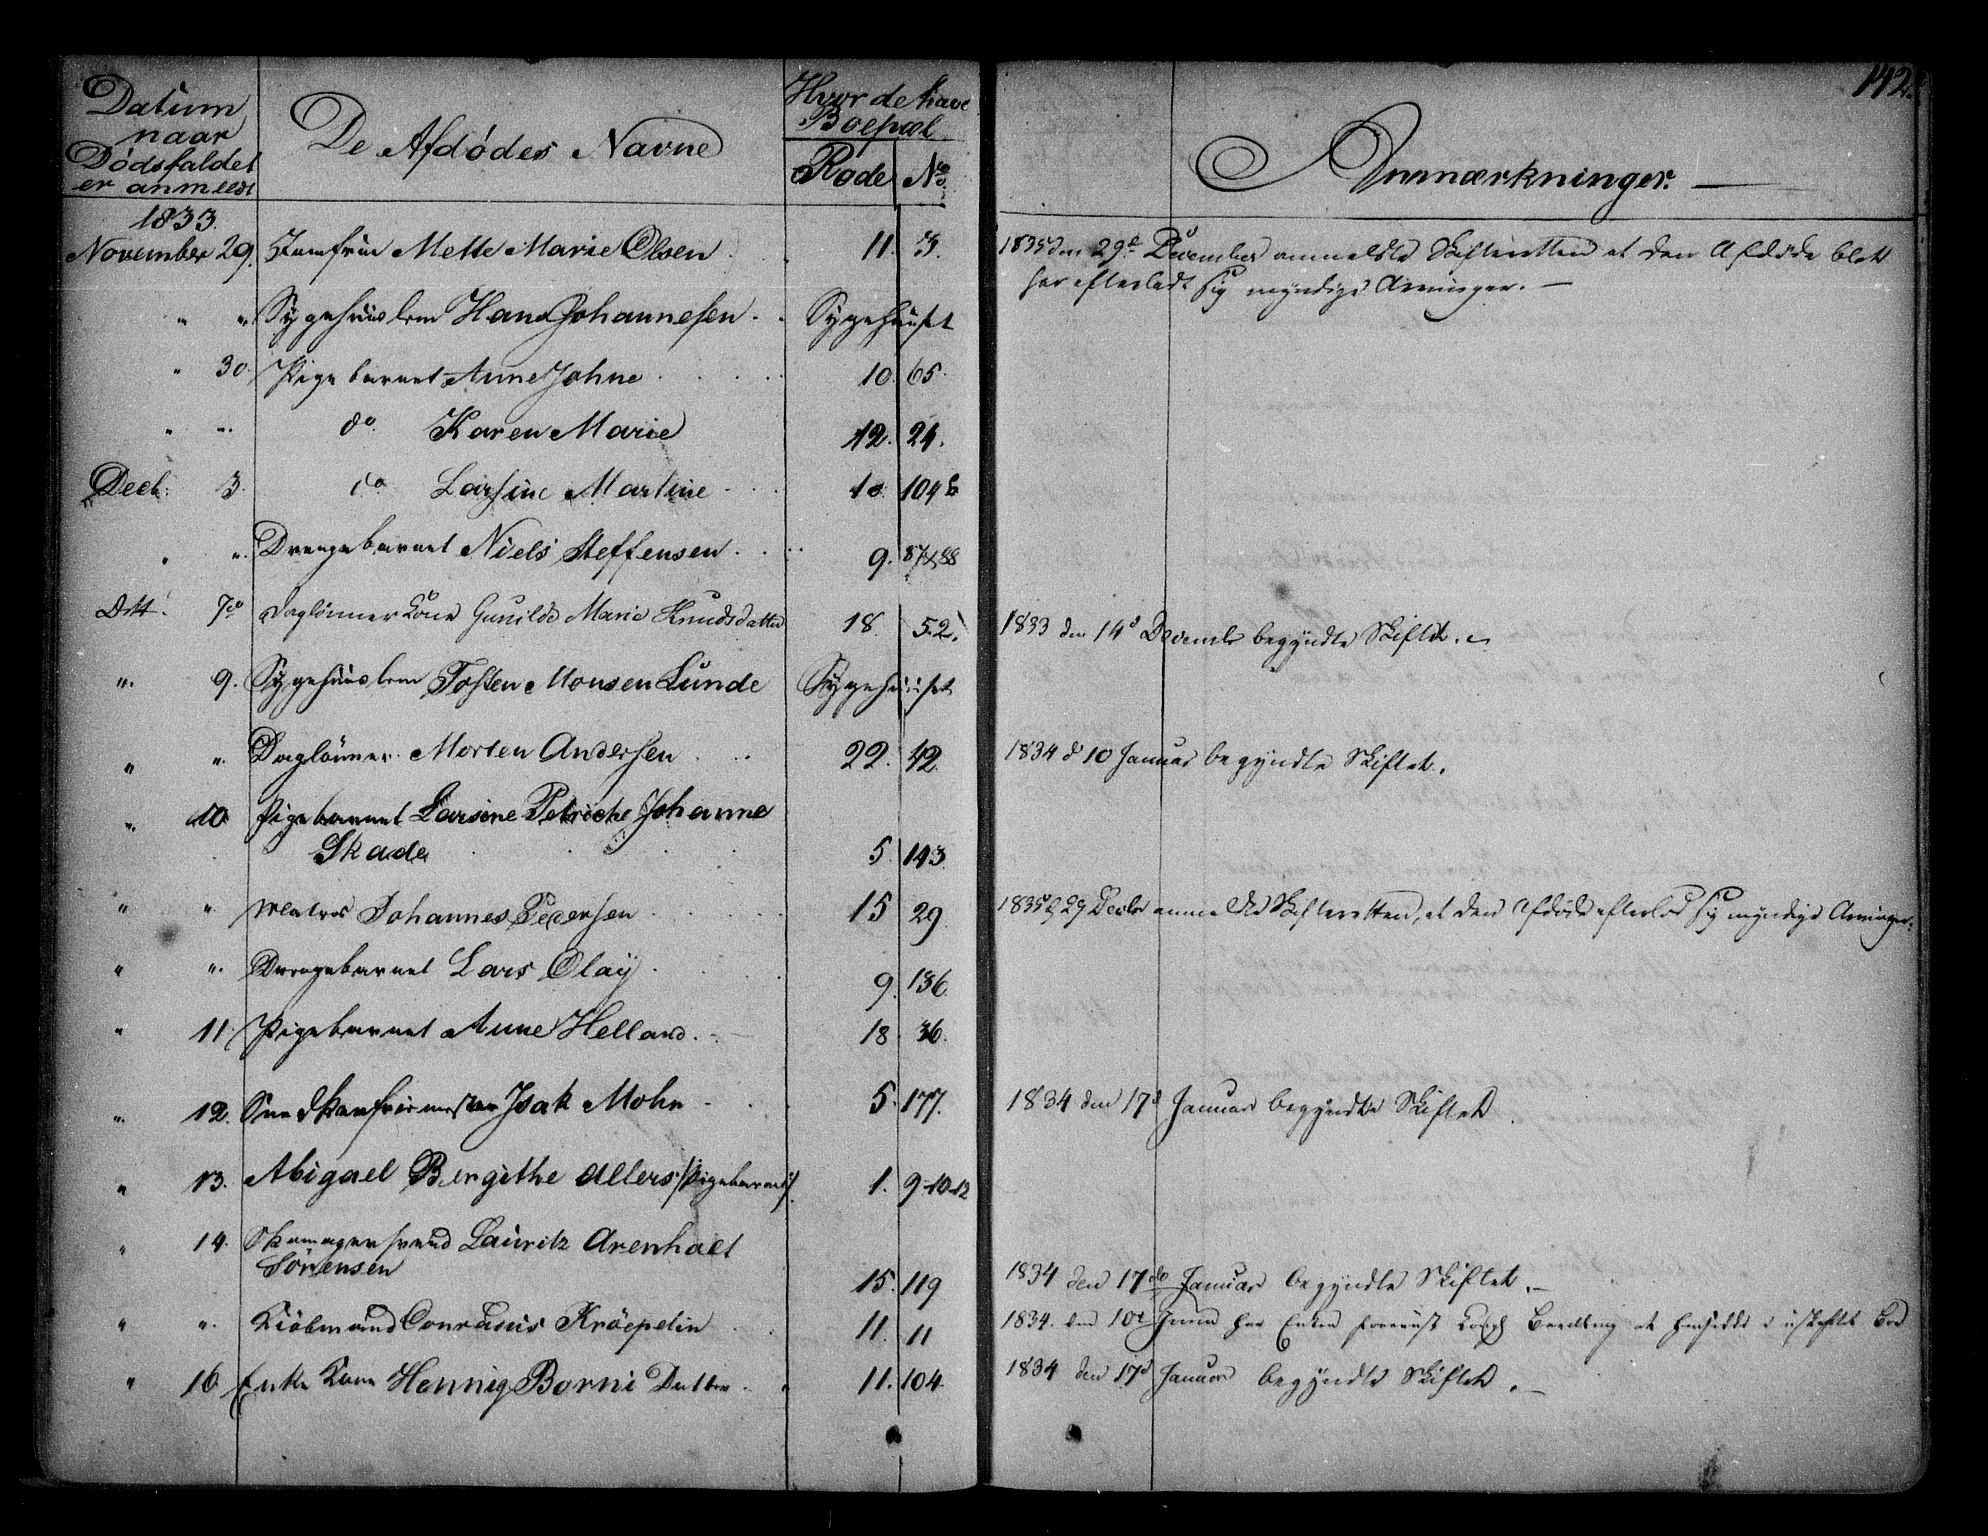 142.
Datum
naar
Dødsfaldet
er anmeldt
De Afdødes Navne
Hvor de have
Boepæl
Rode No
Anmærkninger.
1833.
November 29. Jomfrue Mette Marie Olsen 11. 3. 1835 den 29d December anmeldte Skifteretten at den Afdøde blot
har efterladt sig myndige Arvinger.
" " Sygehuuslem Hans Johannesen Sygehuuset
" 30. Pigebarnet Anne Johne 10. 65.
" " do Karen Marie 12. 24.
Decb. 3. do Larsine Martine 10. 104 b
" " Drengebarnet Niels Steffensen 9. 87 & 88
Ditt. 7de Daglønner Kone Gunilde Marie Knudsdatter 18 52. 1833 den 14d Decembr begyndte Skiftet.
" 9. Sygehuuslem Tosten Monsen Lunde Sygehuuset
" " Daglønner Morten Andersen 22. 42. 1834 d 10 Januar begyndte Skiftet.
" 10 Pigebarnet Larsine Petriche Johanne
Skade 5. 143.
" " Matros Johannes Pedersen 15 29. 1835 d 29 Decbr anmeldte Skifteretten, at den Afdøde efterlod sig myndige Arvinger.
" " Drengebarnet Lars Olay 9. 136.
" 11. Pigebarnet Anne Helland. 18. 36.
" 12. Isak Mohr 5. 177. 1834 den 17d Januar begyndte Skiftet.
" 13. Abigael Bergithe Allers /:Pigebarnet:/ 1. 9-10-12
" 14. Skomagersvend Lauritz Arenhalt
Sörensen 15. 119 1834 den 17de Januar begyndte Skiftet.
" " Kiöbmand Conradus Kröepelin 11. 11 1834. den 10d har Enken foreviist Kongl Bevilling at hensidde i uskiftet Boe
" 16 Enke Kone Hennig Borni Datter 11. 104. 1834 den 17d Januar begyndte Skiftet.